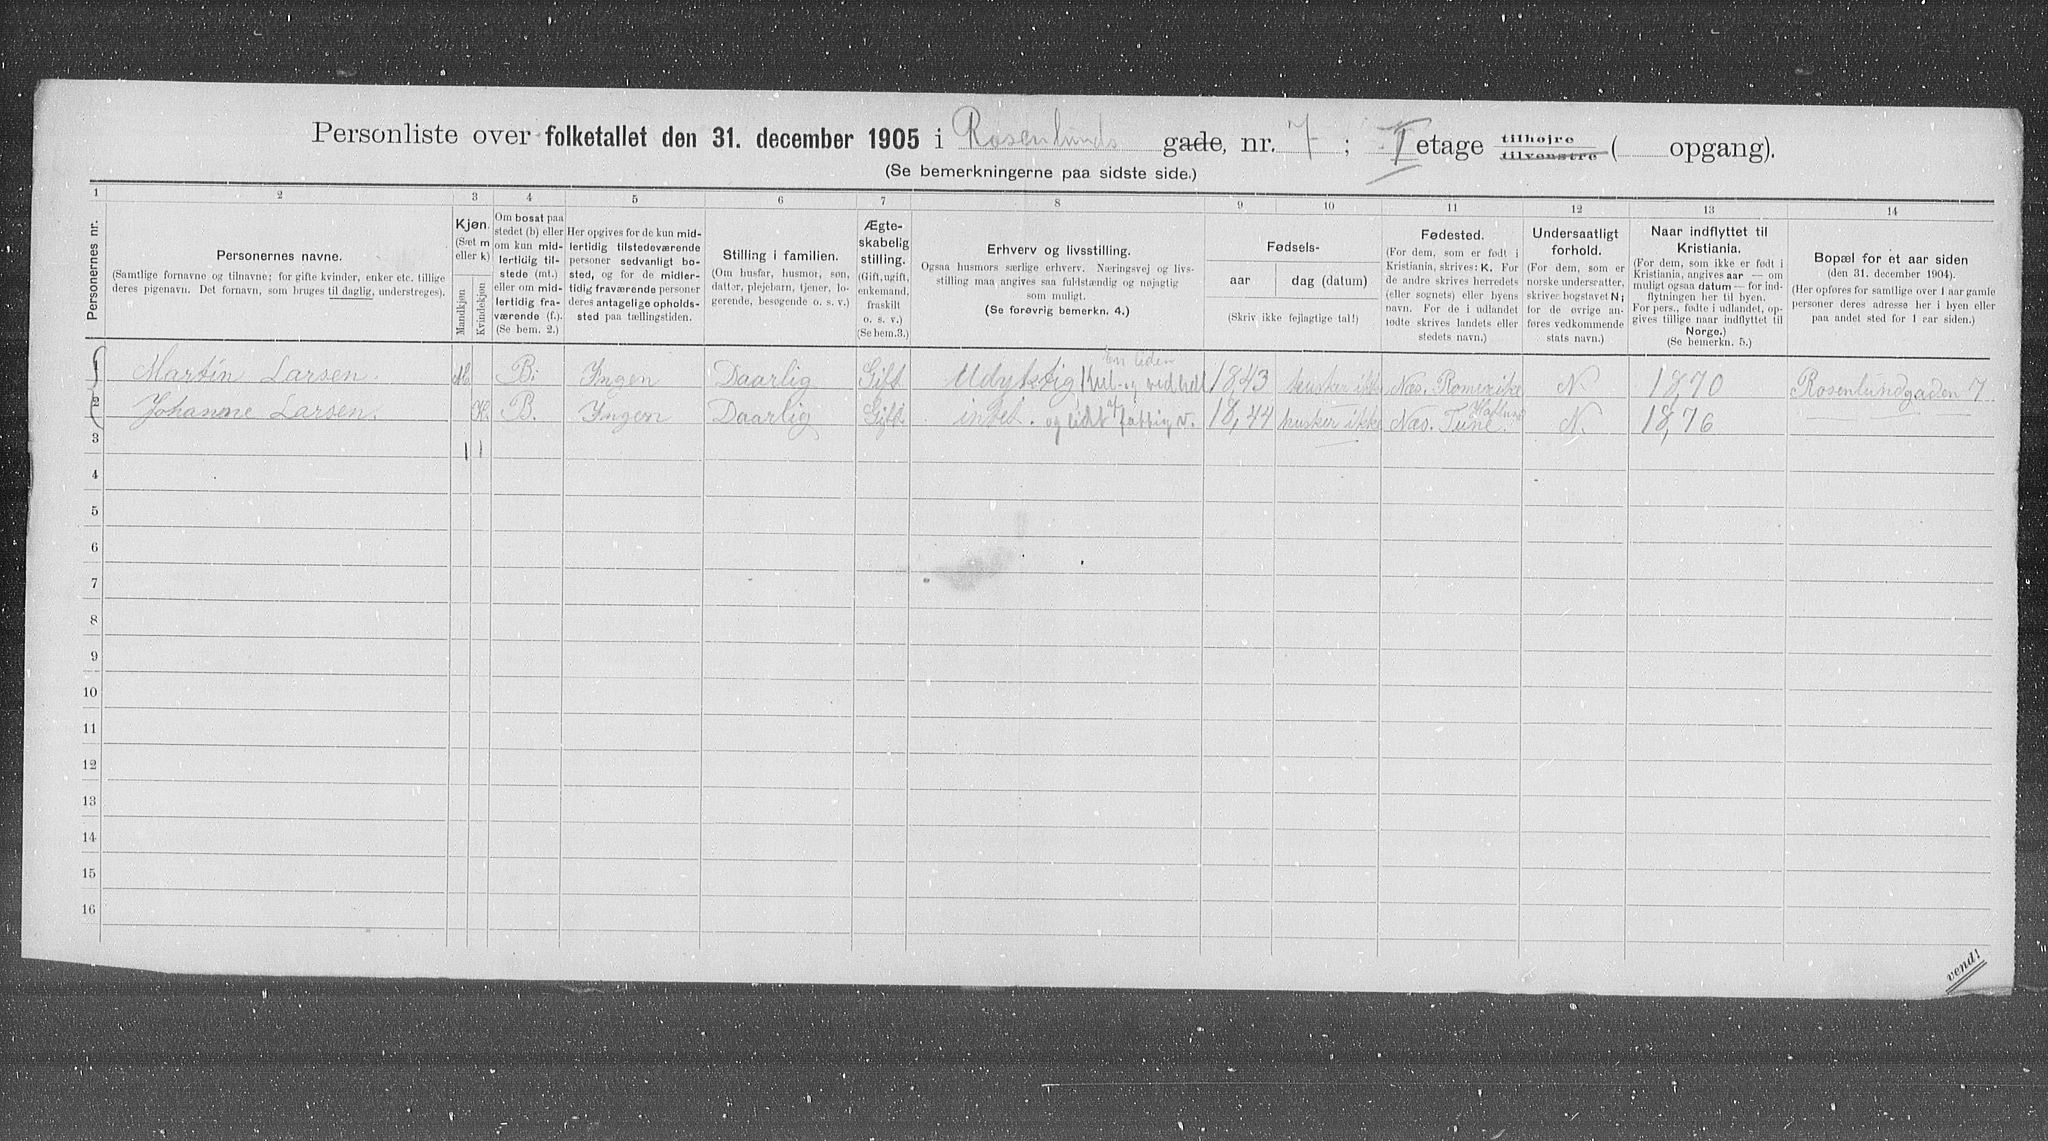 Personliste over folketallet den 31. december 1905 i Rosenlunds gade, nr. 7; I etage tilhøjre tilvenstre ( opgang).
(Se bemerkningerne paa sidste side.)
1 2 3 4 5 6 7 8 9 10 11 12 13 14
Personernes nr.
Personernes navne.
(Samtlige fornavne og tilnavne; for gifte kvinder, enker etc. tillige
deres pigenavn. Det fornavn, som bruges til daglig, understreges).
Kjøn.
(Sæt m
eller k)
Mandkjøn
Kvindekjøn
Om bosat paa
stedet (b) eller
om kun mid-
lertidig til-
stede (mt.)
eller om mid-
lertidig fra-
værende (f.).
(Se bem. 2.)
Her opgives for de kun mid-
lertidig tilstedeværende
personer sedvanligt bo-
sted, og for de midler-
tidig fraværende personer
deres antagelige opholds-
sted paa tællingstiden.
Stilling i familien.
(Om husfar, husmor, søn,
datter, plejebarn, tjener, lo-
gerende, besøgende o. s. v.)
Ægte-
skabelig
stilling.
(Gift, ugift,
enkemand,
fraskilt
o. s. v.)
(Se bem. 3.)
Erhverv og livsstilling.
Ogsaa husmors særlige erhverv. Næringsvej og livs-
stilling maa angives saa fuldstændig og nøjagtig
som muligt.
(Se forøvrig bemerkn. 4.)
Fødsels-
aar dag (datum)
(Skriv ikke fejlagtige tal!)
Fødested.
(For dem, som er født i
Kristiania, skrives: K. For
de andre skrives herredets
(eller sognets) eller byens
navn. For de i udlandet
fødte skrives landets eller
stedets navn.)
Undersaatligt
forhold.
(For dem, som er
norske undersaatter,
skriver bogstavet N;
for de øvrige an-
føres vedkommende
stats navn.)
Naar indflyttet til
Kristiania.
(For dem, som ikke er født i
Kristiania, angives aar — om
muligt ogsaa datum — for ind-
flytningen her til byen.
For pers., fødte i udlandet, op-
gives tillige naar indflyttet til
Norge.)
(Se bemerkn. 5.)
Bopæl for et aar siden
(den 31. december 1904).
(Her opføres for samtlige over 1 aar gamle
personer deres adresse her i byen eller
paa andet sted for 1 aar siden.)
En liden
1 Martin Larsen. M B. Ingen Daarlig Gift Udygtig Kul- og vedhdl 1843 husker ikke Næs. Romerike N 1870 Rosenlundgaden 7
2 Johanne Larsen. K. B. Ingen Daarlig Gift intet. og lidt af fattigv. 18,44 husker ikke Næs. Tune. N. 18,76
3
4
5
6
7
8
9
10
11
12
13
14
15
16
vend!